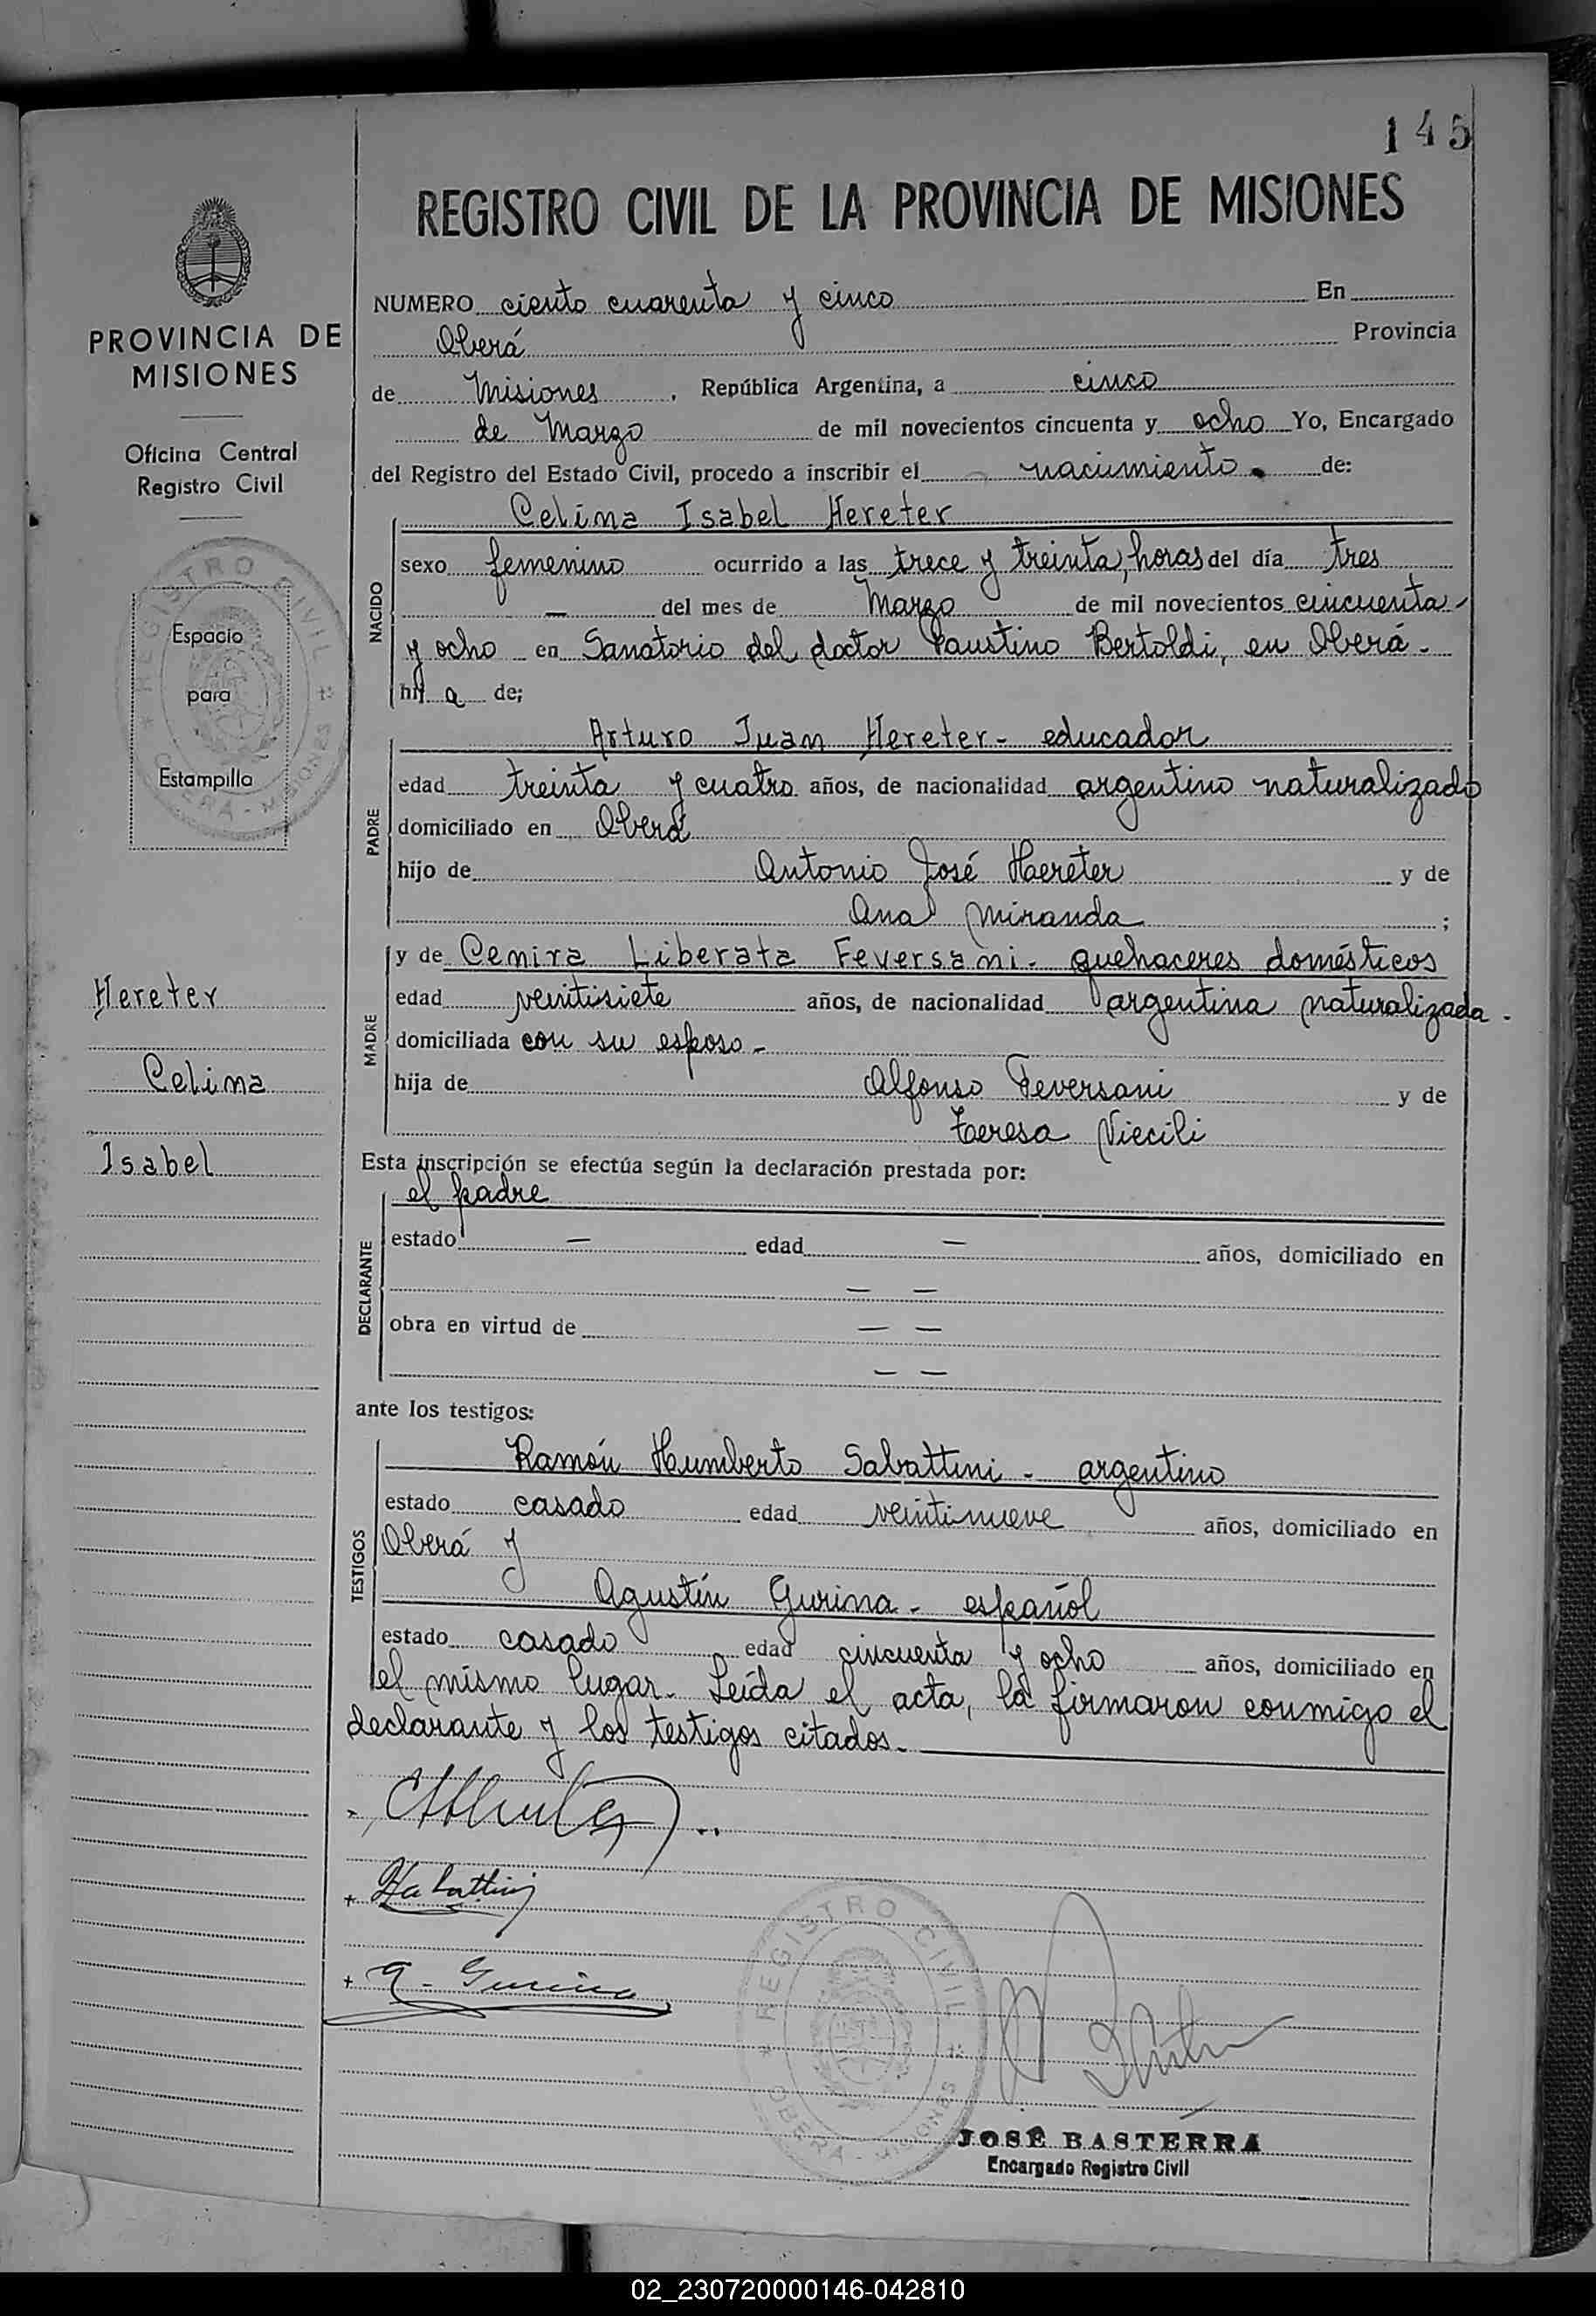 145
REGISTRO CIVIL DE LA PROVINCIA DE MISIONES
PROVINCIA DE
MISIONES
Oficina Central
Registro Civil
REGISTRO CIVIL
OBERÁ - MISIONES
Espacio
para
Estampilla
Hereter
Celina
Isabel
NUMERO ciento cuarenta y cinco En
Oberá Provincia
de Misiones, República Argentina, a cinco
de Marzo de mil novecientos cincuenta y ocho Yo, Encargado
del Registro del Estado Civil, procedo a inscribir el nacimiento de:
NACIDO
Celina Isabel Hereter
sexo femenino ocurrido a las trece y treinta, horas del día tres
— del mes de Marzo de mil novecientos cincuenta
y ocho en Sanatorio del doctor Faustino Bertoldi, en Oberá.
hij a de;
PADRE
Arturo Juan Hereter - educador
edad treinta y cuatro años, de nacionalidad argentino naturalizado
domiciliado en Oberá
hijo de Antonio José Hereter y de
Ana Miranda ;
MADRE
y de Cenira Liberata Feversani - quehaceres domésticos
edad veintisiete años, de nacionalidad argentina naturalizada.
domiciliada con su esposo -
hija de Alfonso Feversani y de
Teresa Viecili
Esta inscripción se efectúa según la declaración prestada por:
DECLARANTE
el padre
estado — edad — años, domiciliado en
— —
obra en virtud de — —
— —
ante los testigos:
TESTIGOS
Ramón Humberto Sabattini - argentino
estado casado edad veintinueve años, domiciliado en
Oberá y
Agustín Gurina - español
estado casado edad cincuenta y ocho años, domiciliado en
el mismo lugar. Leída el acta, la firmaron conmigo el
declarante y los testigos citados.
Sabattini
A. Gurina
REGISTRO CIVIL
OBERÁ - MISIONES
JOSÉ BASTERRA
Encargado Registro Civil
02_230720000146-042810